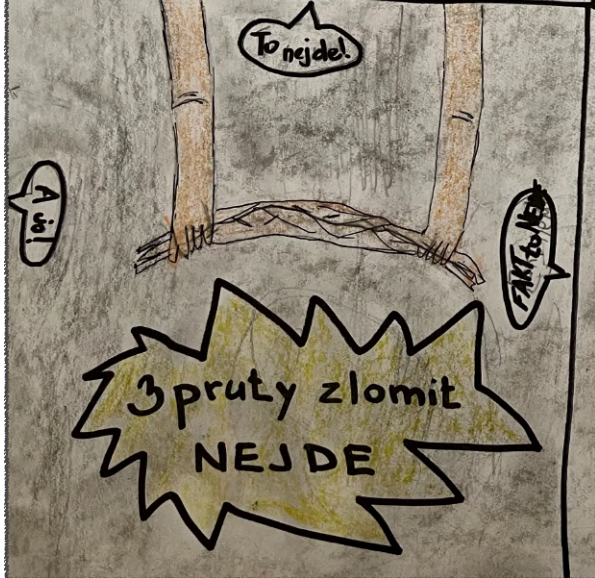 To nejde!
A jo!
FAKT to NEJDE
3 pruty zlomit
NEJDE